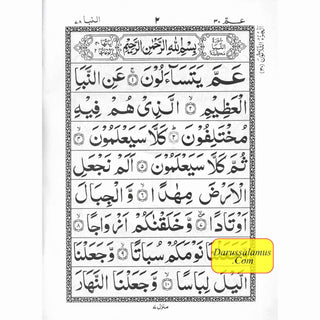 عَمَّ ٣٠
٢
النبا ٧٨
بِسْمِ اللّٰهِ الرَّحْمٰنِ الرَّحِيْمِ
عَمَّ يَتَسَآءَلُوْنَ ۝١ عَنِ النَّبَاِ
الْعَظِيْمِ ۝٢ الَّذِىْ هُمْ فِيْهِ
مُخْتَلِفُوْنَ ۝٣ كَلَّا سَيَعْلَمُوْنَ ۝٤
ثُمَّ كَلَّا سَيَعْلَمُوْنَ ۝٥ اَلَمْ نَجْعَلِ
الْاَرْضَ مِهٰدًا ۝٦ وَّالْجِبَالَ
اَوْتَادًا ۝٧ وَّخَلَقْنٰكُمْ اَزْوَاجًا ۝٨
وَّجَعَلْنَا نَوْمَكُمْ سُبَاتًا ۝٩ وَّجَعَلْنَا
الَّيْلَ لِبَاسًا ۝١٠ وَّجَعَلْنَا النَّهَارَ
Darussalamus
.Com
منزل ٧